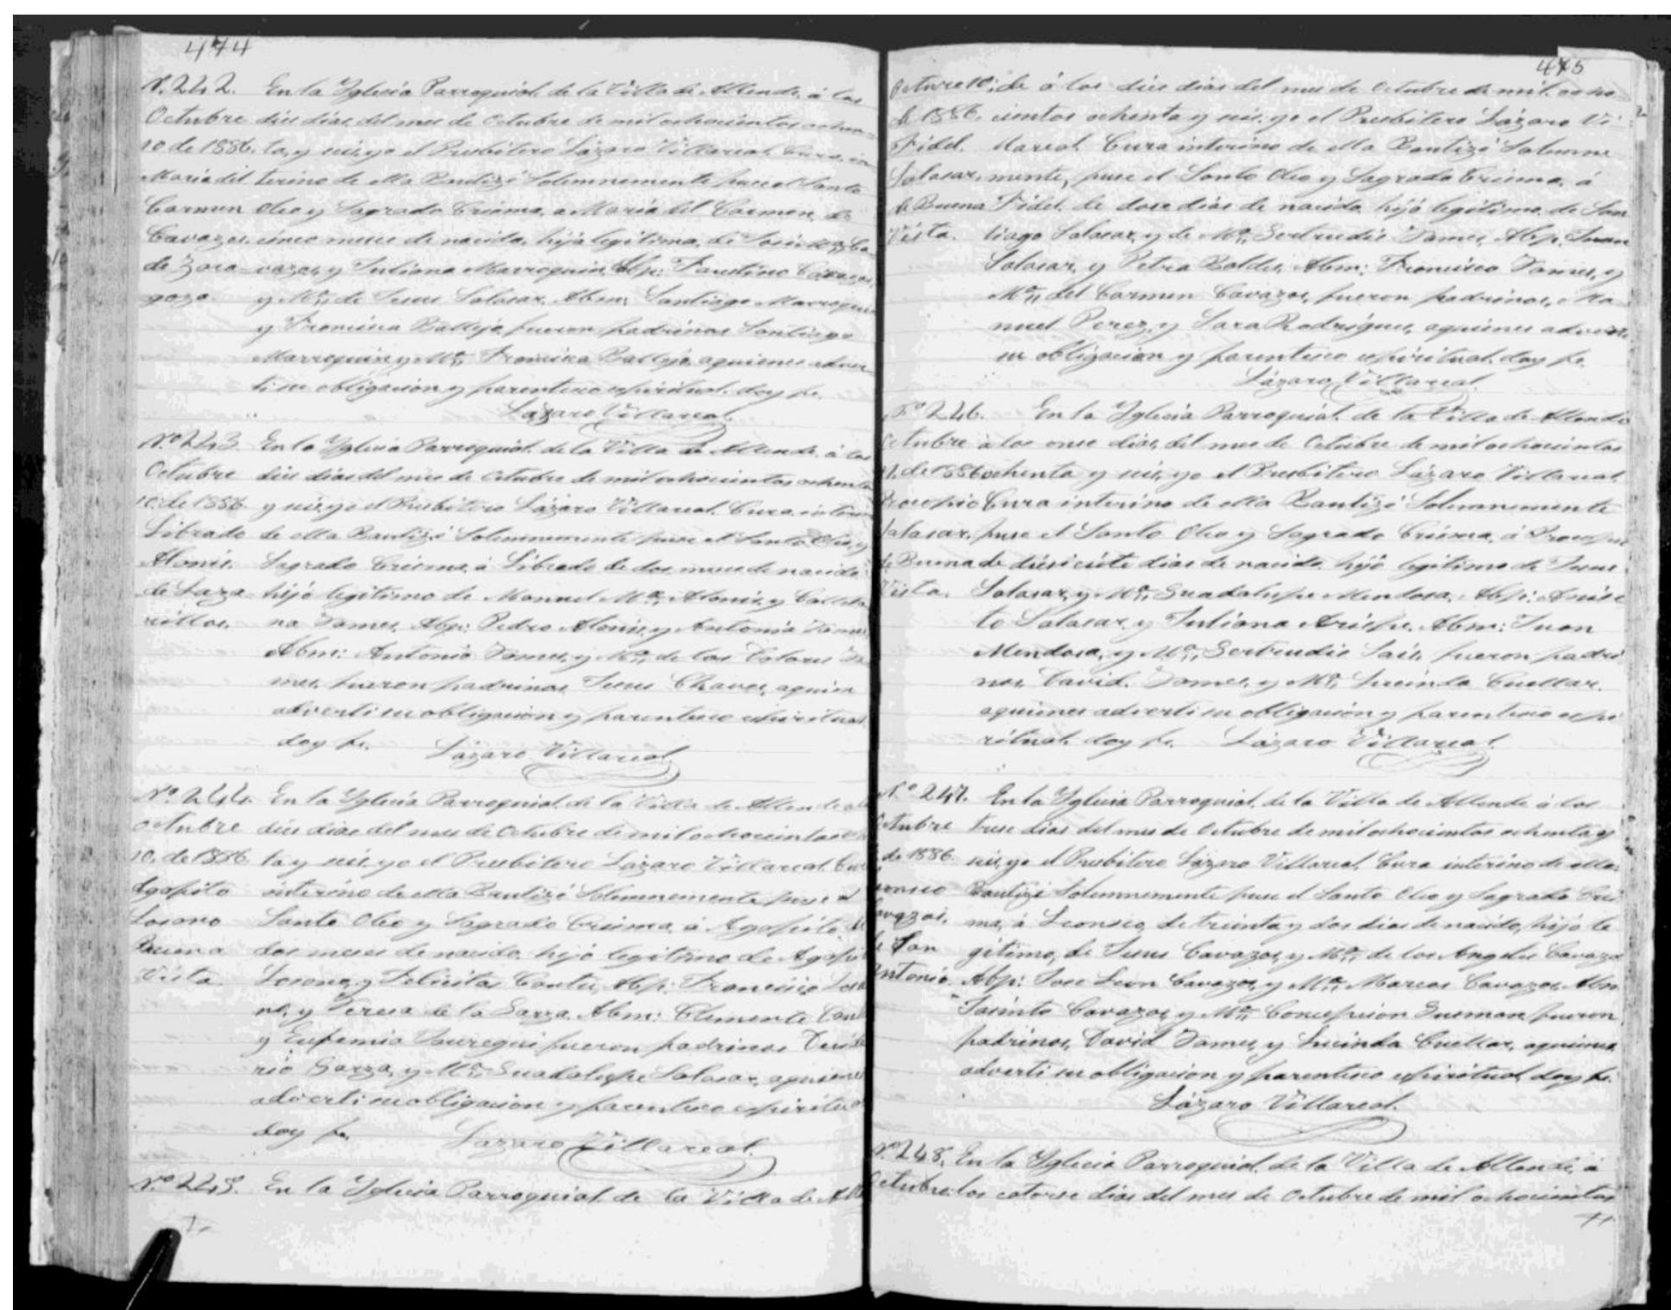 474
N. 242. En la Yglesia Parroquial de la Villa de Allende, á los
Octubre dies dias del mes de Octubre de mil ochocientos ochen
10 de 1886. ta, y seis, yo el Presbitero Lázaro Villareal, Cura, in
Maria del terino de ella Bautizé Solemnemente puse el Santo
Carmen Oleo y Sagrado Crisma, a Maria del Carmen, de
Cavazos. cinco meses de nacida, hija legitima, de Ca
de Zara vazos, y Juliana Marroquin, Abp: Faustino Cavazos,
goza. y Ma. de Jesus Salasar, Abm: Santiago Marroquin
y Francisca Ballejo, fueron padrinos Santiago
Marroquin, y Ma. Francisca Ballejo, aquienes adver
ti su obligacion y parentesco espiritual. doy fe.
Lázaro Villareal.
No. 243. En la Yglesia Parroquial de la Villa de Allende, á los
Octubre dies dias del mes de Octubre de mil ochocientos ochenta
10 de 1886. y seis, yo el Presbitero Lázaro Villareal, Cura interino
Librado de ella Bautizé Solemnemente puse el Santo Oleo y
Alanis. Sagrado Crisma, á Librado de dos meses de nacido
de Laza hijo legitimo de Manuel Ma. Alanis, y
rillos. na Tames, Abp: Pedro Alanis, y Antonia Tames,
Abm: Antonio Tames, y Ma. de los Dolores Ta
mes, fueron padrinos, Jesus Chaves, aquien
adverti su obligacion y parentesco espiritual
doy fe. Lázaro Villareal
No. 244. En la Yglesia Parroquial de la Villa de Allende á
Octubre dies dias del mes de Octubre de mil ochocientos
10. de 1886. ta y seis, yo el Presbitero Lázaro Villareal Cu
Agapito interino de ella Bautizé Solemnemente puse el
Losano Santo Oleo y Sagrado Crisma, á Agapito, de
Buena dos meses de nacido, hijo legitimo de Agapit
Vista. Losano, y Felicitas Cantu, Abp: Francisco Losa
no, y Teresa de la Garza, Abm: Clemente Can
y Eufemia Jauregui fueron padrinos Deside
rio Garza, y Ma. Guadalupe Salasar, aquienes
adverti su obligacion y parentesco espiritu
doy fe. Lazaro Villareal.
No. 245. En la Yglesia Parroquial de la Villa de All
475
Octubre 10. de á los dies dias del mes de Octubre de mil ocho
de 1886. cientos ochenta y seis, yo el Presbitero Lázaro Vi
Fidel llareal, Cura interino de ella Bautizé Solemne
Salasar, mente, puse el Santo Oleo y Sagrado Crisma, á
de Buena Fidel, de dose dias de nacido, hijo legitimo, de San
Vista. tiago Salasar, y de Ma. Gertrudis Tames, Abp: Juan
Salasar, y Petra Baldes, Abm: Francisco Tames, y
Ma. del Carmen Cavazos, fueron padrinos, Ma
nuel Perez, y Sara Rodriguez, aquienes adverti
su obligacion y parentesco espiritual, doy fe.
Lázaro Villareal.
No. 246. En la Yglesia Parroquial de la Villa de Allende
Octubre á los onse dias, del mes de Octubre de mil ochocientos
11. de 1886 ochenta y seis, yo el Presbitero Lázaro Villareal,
Procopio Cura interino de ella Bautizé Solemnemente
Salasar, puse el Santo Oleo y Sagrado Crisma, á Procopio
de Buena de diesisiete dias de nacido, hijo legitimo de Jesus
Vista. Salasar, y Ma. Guadalupe Mendosa, Abp:
to Salasar, y Juliana Arispe, Abm: Juan
Mendosa, y Ma. Gertrudis Sais, fueron padri
nos, David Tames, y Ma. Lucinda Cuellar.
aquienes adverti su obligacion y parentesco espi
ritual. doy fe. Lázaro Villareal.
No. 247. En la Yglesia Parroquial de la Villa de Allende á los
Octubre trese dias del mes de Octubre de mil ochocientos ochenta y
de 1886. seis, yo el Presbitero Lázaro Villareal, Cura interino de ella
Bautizé Solemnemente puse el Santo Oleo y Sagrado Cris
avazos. ma, á de treinta y dos dias de nacido, hijo le
San gitimo, de Jesus Cavazos, y Ma. de los Angeles Cavazos
Antonio. Abp: Jose Leon Cavazos, y Ma. Marcos Cavazos, Abm
Jasinto Cavazos, y Ma. Concepcion Gusman, fueron
padrinos, David Tames, y Lucinda Cuellar, aquienes
adverti su obligacion y parentesco espiritual, doy fe.
Lázaro Villareal.
No. 248. En la Yglesia Parroquial de la Villa de Allende, á
Octubre los catorse dias del mes de Octubre de mil ochocientos